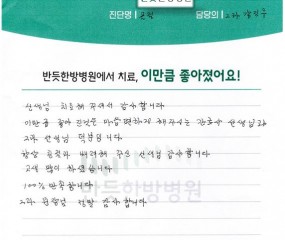 진단명 담당의
반듯한방병원에서 치료, 이만큼 좋아졌어요!
선생님 치료해 주셔서 감사합니다
이만큼 좋아진것은 마음편하게 해주시는 간호사 선생님과
선생님 덕분입니다
항상 친절과 배려해 주신 선생님 감사합니다
고생 많이 하셨습니다
100% 만족합니다
원장님 정말 감사합니다
반듯한방병원